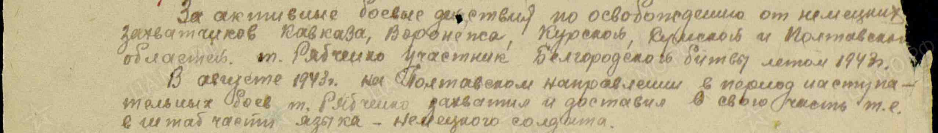 За активные боевые действия по освобождению от немецких
захватчиков Кавказа, Воронежа, Курской, Сумской и Полтавской
областей. т. Рябченко участник Белгородской битвы летом 1943г.
В августе 1943г. на Полтавском направлении в период наступа-
тельных боев т. Рябченко захватил и доставил в свою часть т.е.
в штаб части языка - немецкого солдата.